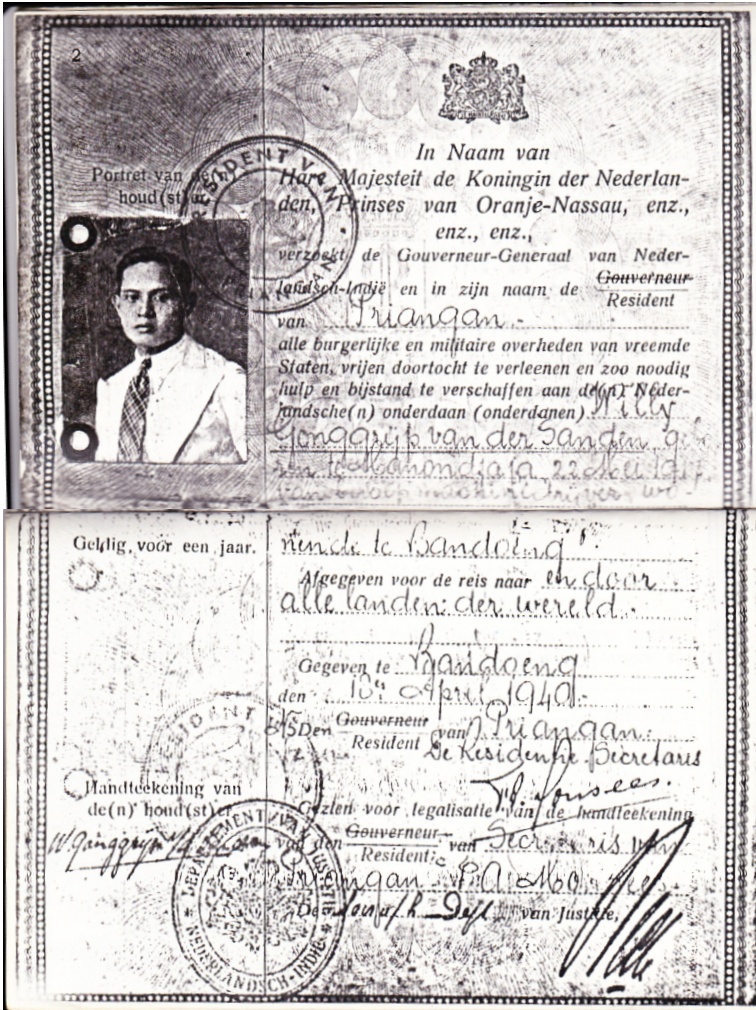 2
In Naam van
Portret van de(n)
houd(st)er
Hare Majesteit de Koningin der Nederlan-
den, Prinses van Oranje-Nassau, enz.,
enz., enz.,
RESIDENT VAN
PRIANGAN
verzoekt de Gouverneur-Generaal van Neder-
landsch-Indië en in zijn naam de Gouverneur
Resident
van Priangan.
alle burgerlijke en militaire overheden van vreemde
Staten, vrijen doortocht te verleenen en zoo noodig
hulp en bijstand te verschaffen aan de(n) Neder-
landsche(n) onderdaan (onderdanen) Willy
Gonggrijp van der Sanden, ge-
ren te 22 Mei
van beroep wo-
Geldig voor een jaar.
nende te Bandoeng
Afgegeven voor de reis naar en door
alle landen der wereld.
Gegeven te Bandoeng
den April 1940.
Den Gouverneur van Priangan.
Resident
De Residentie Secretaris
RESIDENT
Handteekening van
de(n) houd(st)er
Gezien voor legalisatie van de handteekening
van den Gouverneur van Secretaris van
Resident
Priangan P.A.
De van Justitie,
DEPARTEMENT VAN JUSTITIE
NEDERLANDSCH-INDIË